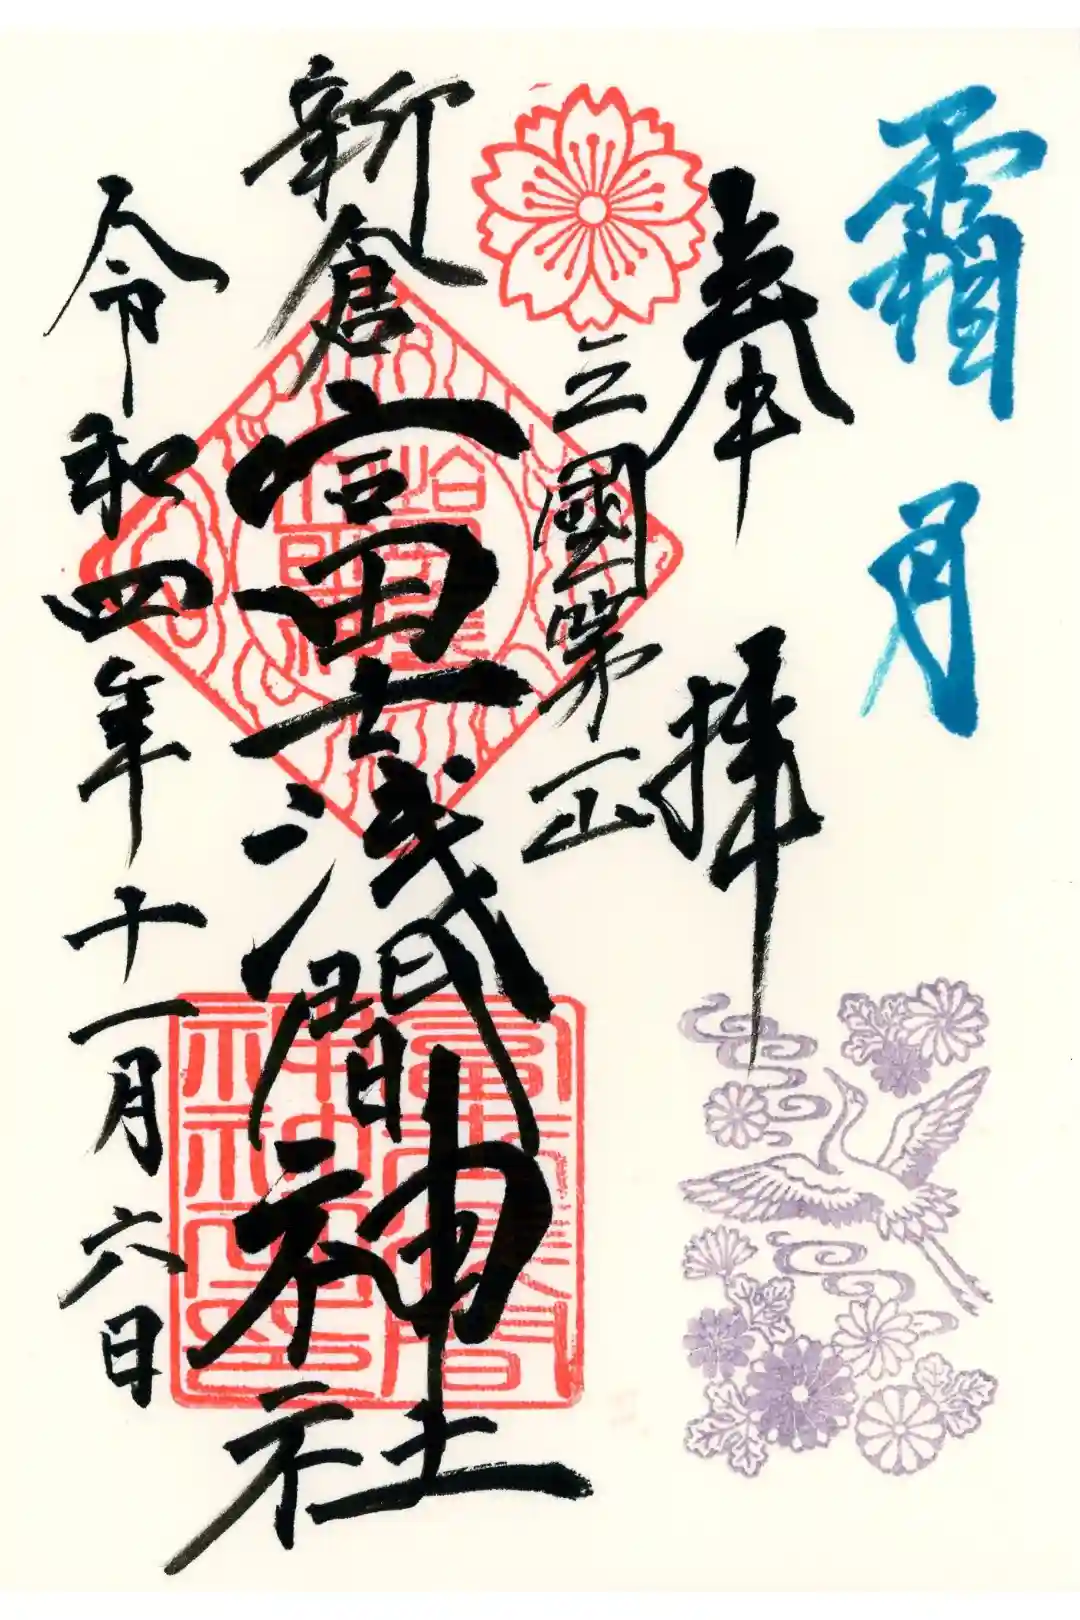 霜月
奉拝
三國第一山
新倉富士浅間神社
令和四年十一月六日